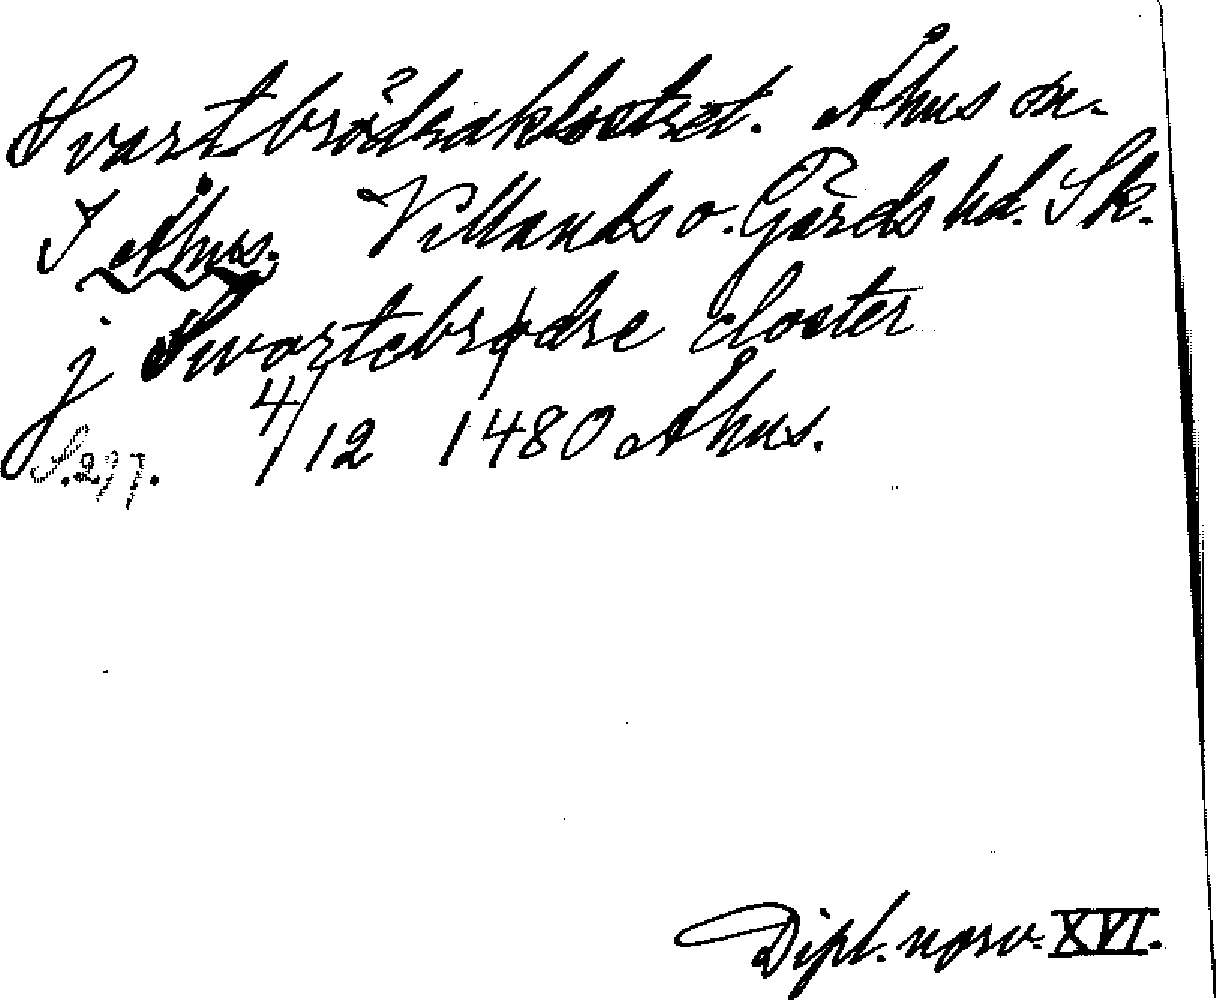 Svartbrödraklostret. Åhus sn.
I Åhus. Villands o. Gärds hd. Sk.
j Swartebrødre closter
4/12 1480 Åhus.
S. 297.
Dipl. norv. XVI.